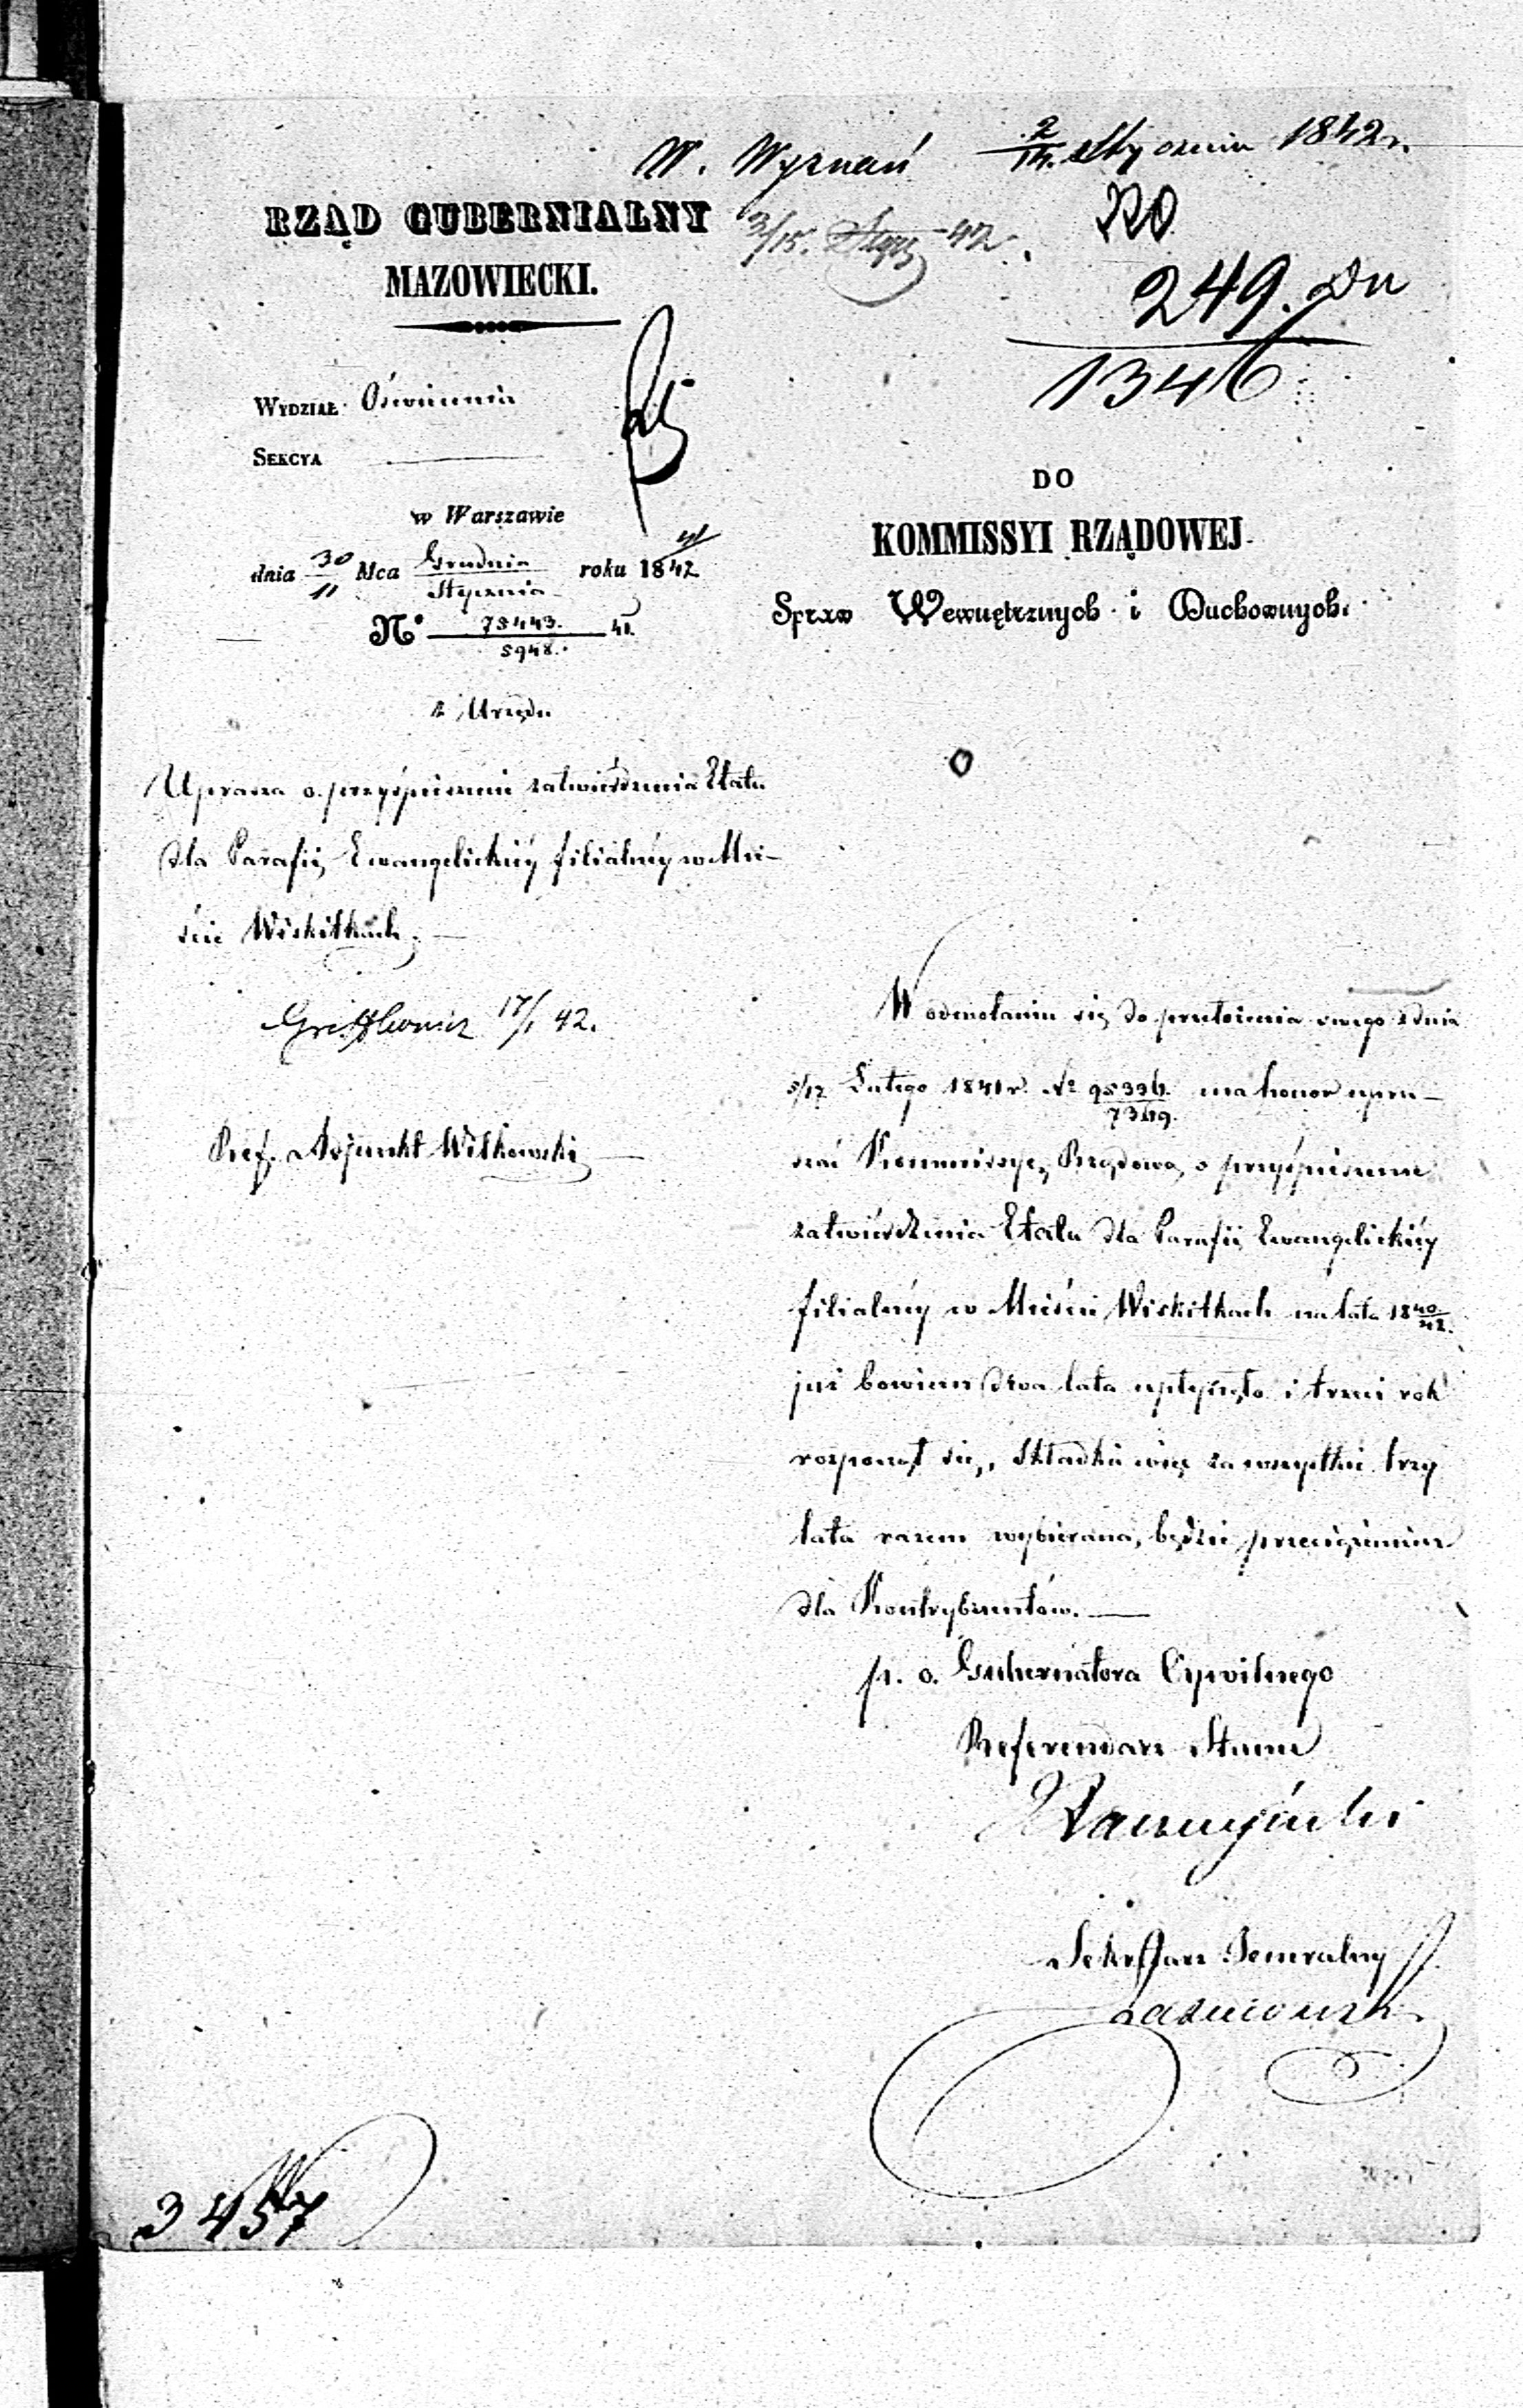 W. Wyznań 2/14. Stycznia 1842 r.
RZĄD GUBERNIALNY
MAZOWIECKI.
3/15. Stycz 42.
249.
1346
WYDZIAŁ Oświecenia
SEKCYA
w Warszawie
dnia 30/11 Mca Grudnia/Stycznia roku 18 41/42
N° 78443./5948. 41.
z Urzędu
Uprasza o przyśpieszenie zatwierdzenia Etatu
dla Parafii Ewangelickiéy filialnéy w Mie-
ście Wiskitkach.
17/1 42.
Ref. Adjunkt Witkowski
DO
KOMMISSYI RZĄDOWEJ
Spraw Wewnętrznych i Duchownych.
W odwołaniu się do przełożenia swego z dnia
5/17 Lutego 1841 r. N° 95336./7349. ma honor upra-
szać Kommissyę Rządową o przyśpieszenie
zatwierdzenia Etatu dla Parafii Ewangelickiéy
filialnéy w Mieście Wiskitkach na lata 18 40/42.
już bowiem dwa lata upłynęło i trzeci rok
rozpoczął się, Składka więc za wszystkie trzy
lata razem wybierana, będzie przeciążeniem
dla Kontrybuentów.
p. o. Gubernatora Cywilnego
Referendarz Stanu
Sekretarz Jeneralny
3457